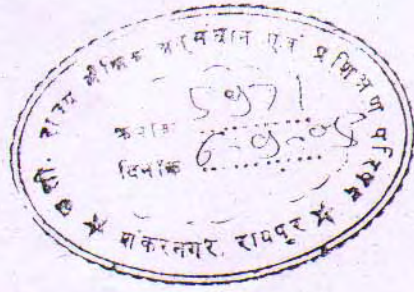 छ.ग. राज्य शैक्षिक अनुसंधान एवं प्रशिक्षण परिषद
क्रमांक 5971
दिनांक 6-9-05
★ शंकरनगर, रायपुर ★